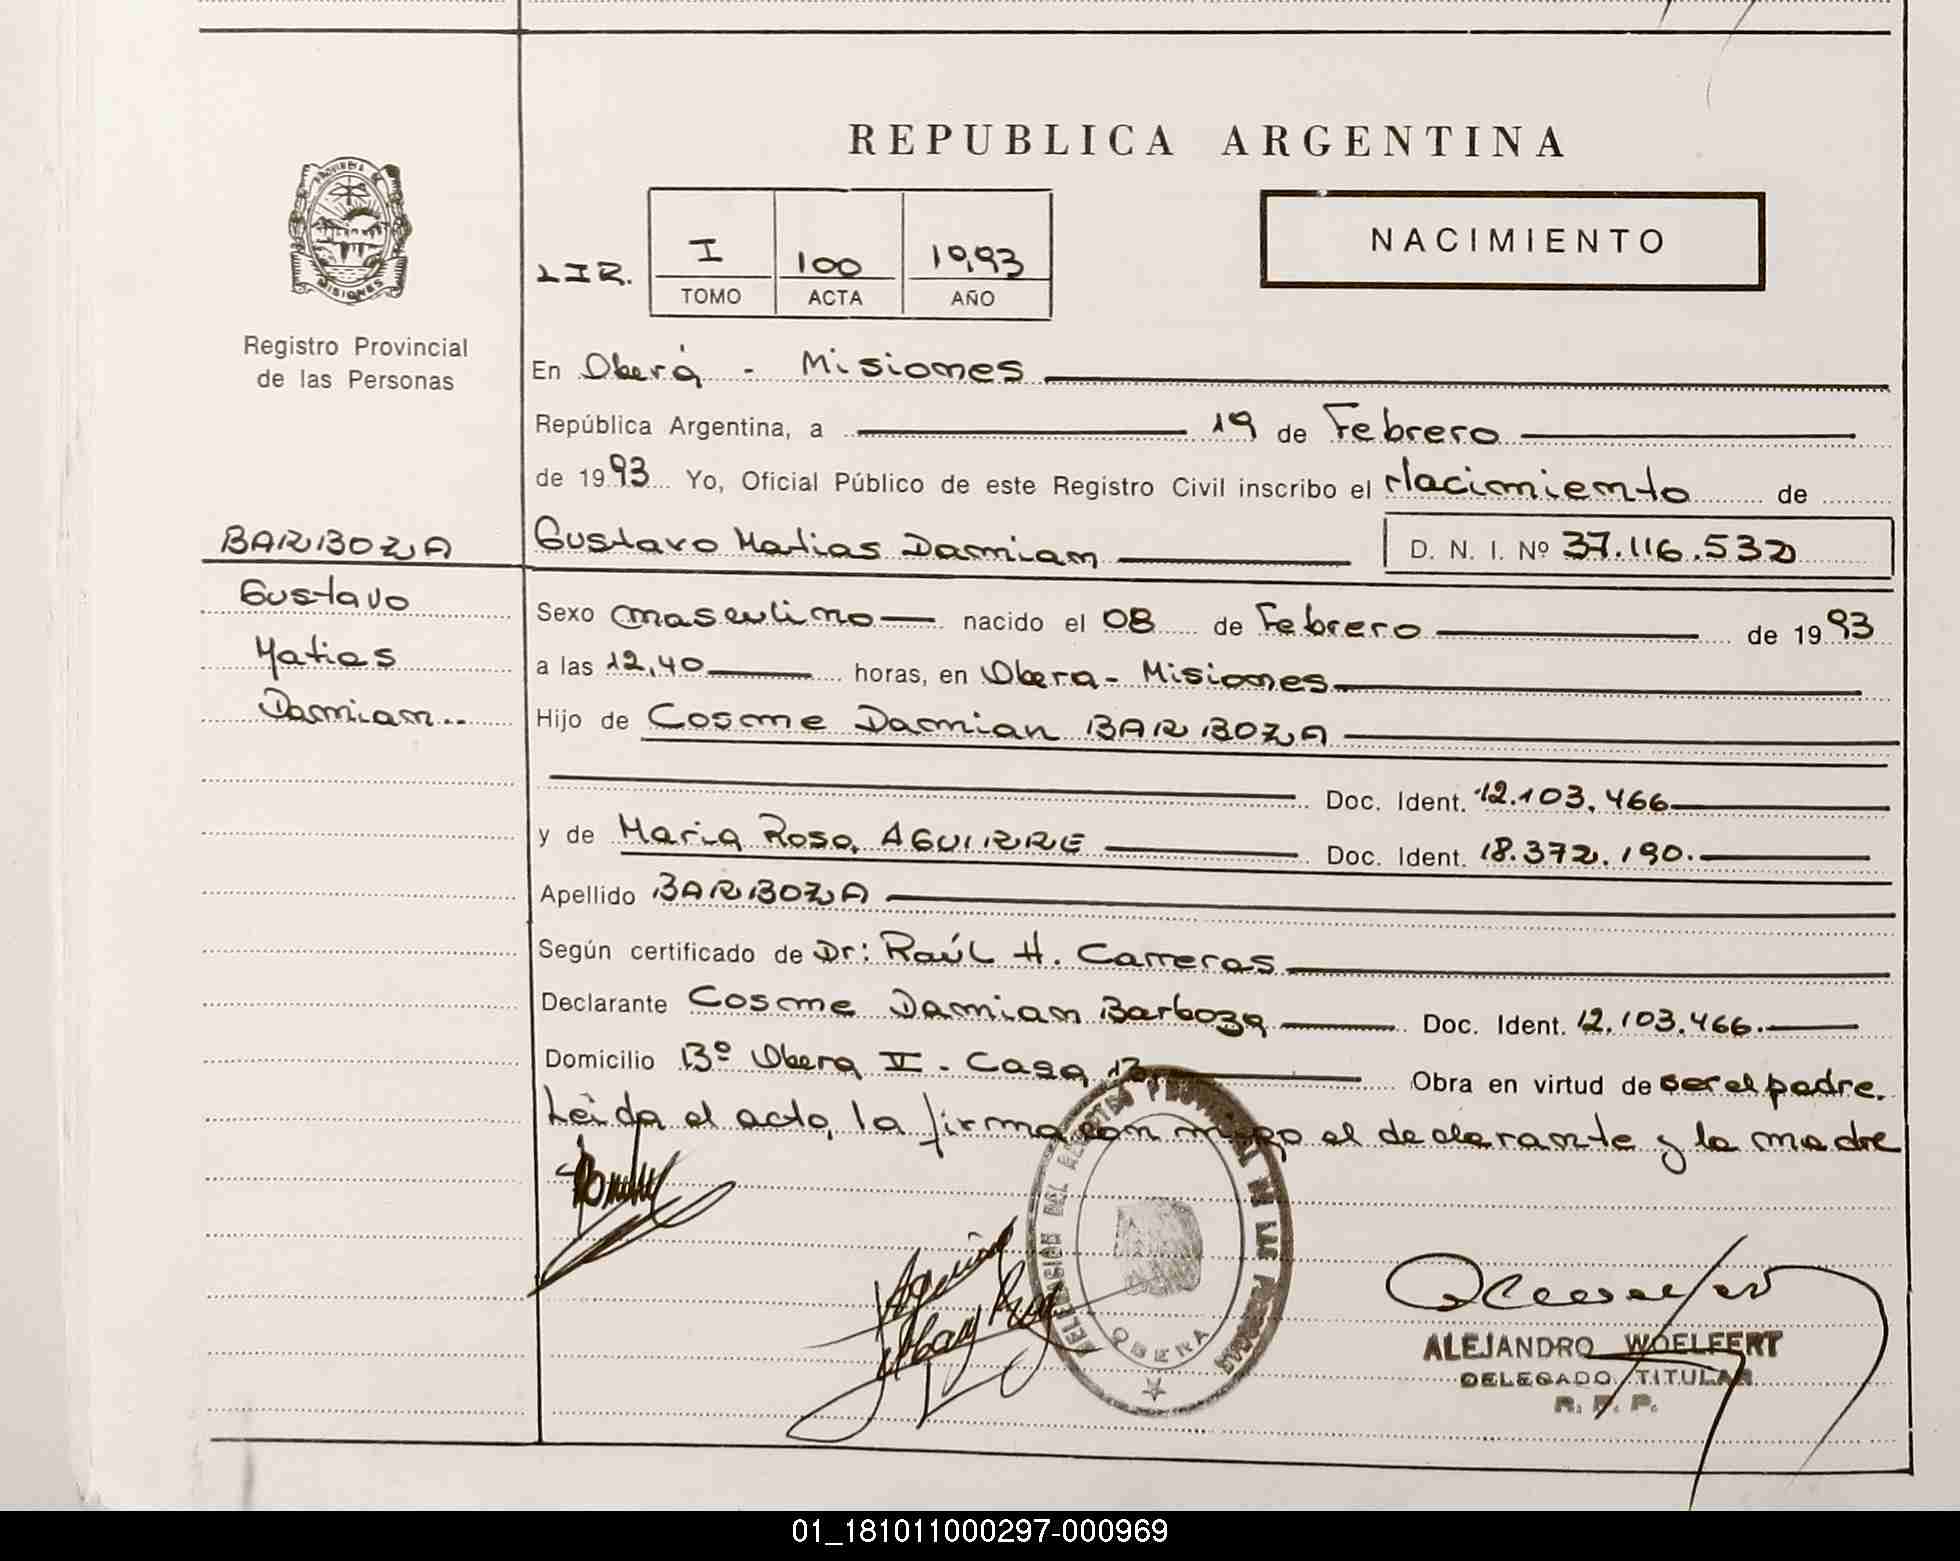 REPUBLICA ARGENTINA
NACIMIENTO
PROVINCIA DE
MISIONES
Registro Provincial
de las Personas
I 100 19,93
TOMO ACTA AÑO
En Oberá - Misiones
República Argentina, a 19 de Febrero
de 1993 Yo, Oficial Público de este Registro Civil inscribo el Nacimiento de
BARBOZA
Gustavo
Matias
Damian
Gustavo Matias Damian D. N. I. Nº 37.116.532
Sexo masculino nacido el 08 de Febrero de 1993
a las 12,40 horas, en Obera - Misiones
Hijo de Cosme Damian BARBOZA
Doc. Ident. 12.103.466
y de Maria Rosa AGUIRRE Doc. Ident. 18.372.190.
Apellido BARBOZA
Según certificado de Dr: Raúl H. Carreras
Declarante Cosme Damian Barboza Doc. Ident. 12.103.466.
Domicilio Bº Obera II - Casa Obra en virtud de ser el padre.
Leida el acta, la firma con migo el declarante y la madre
DELEGACION DEL REGISTRO PROVINCIAL DE LAS PERSONAS
OBERA
ALEJANDRO WOELFERT
DELEGADO TITULAR
R. P. P.
01_181011000297-000969